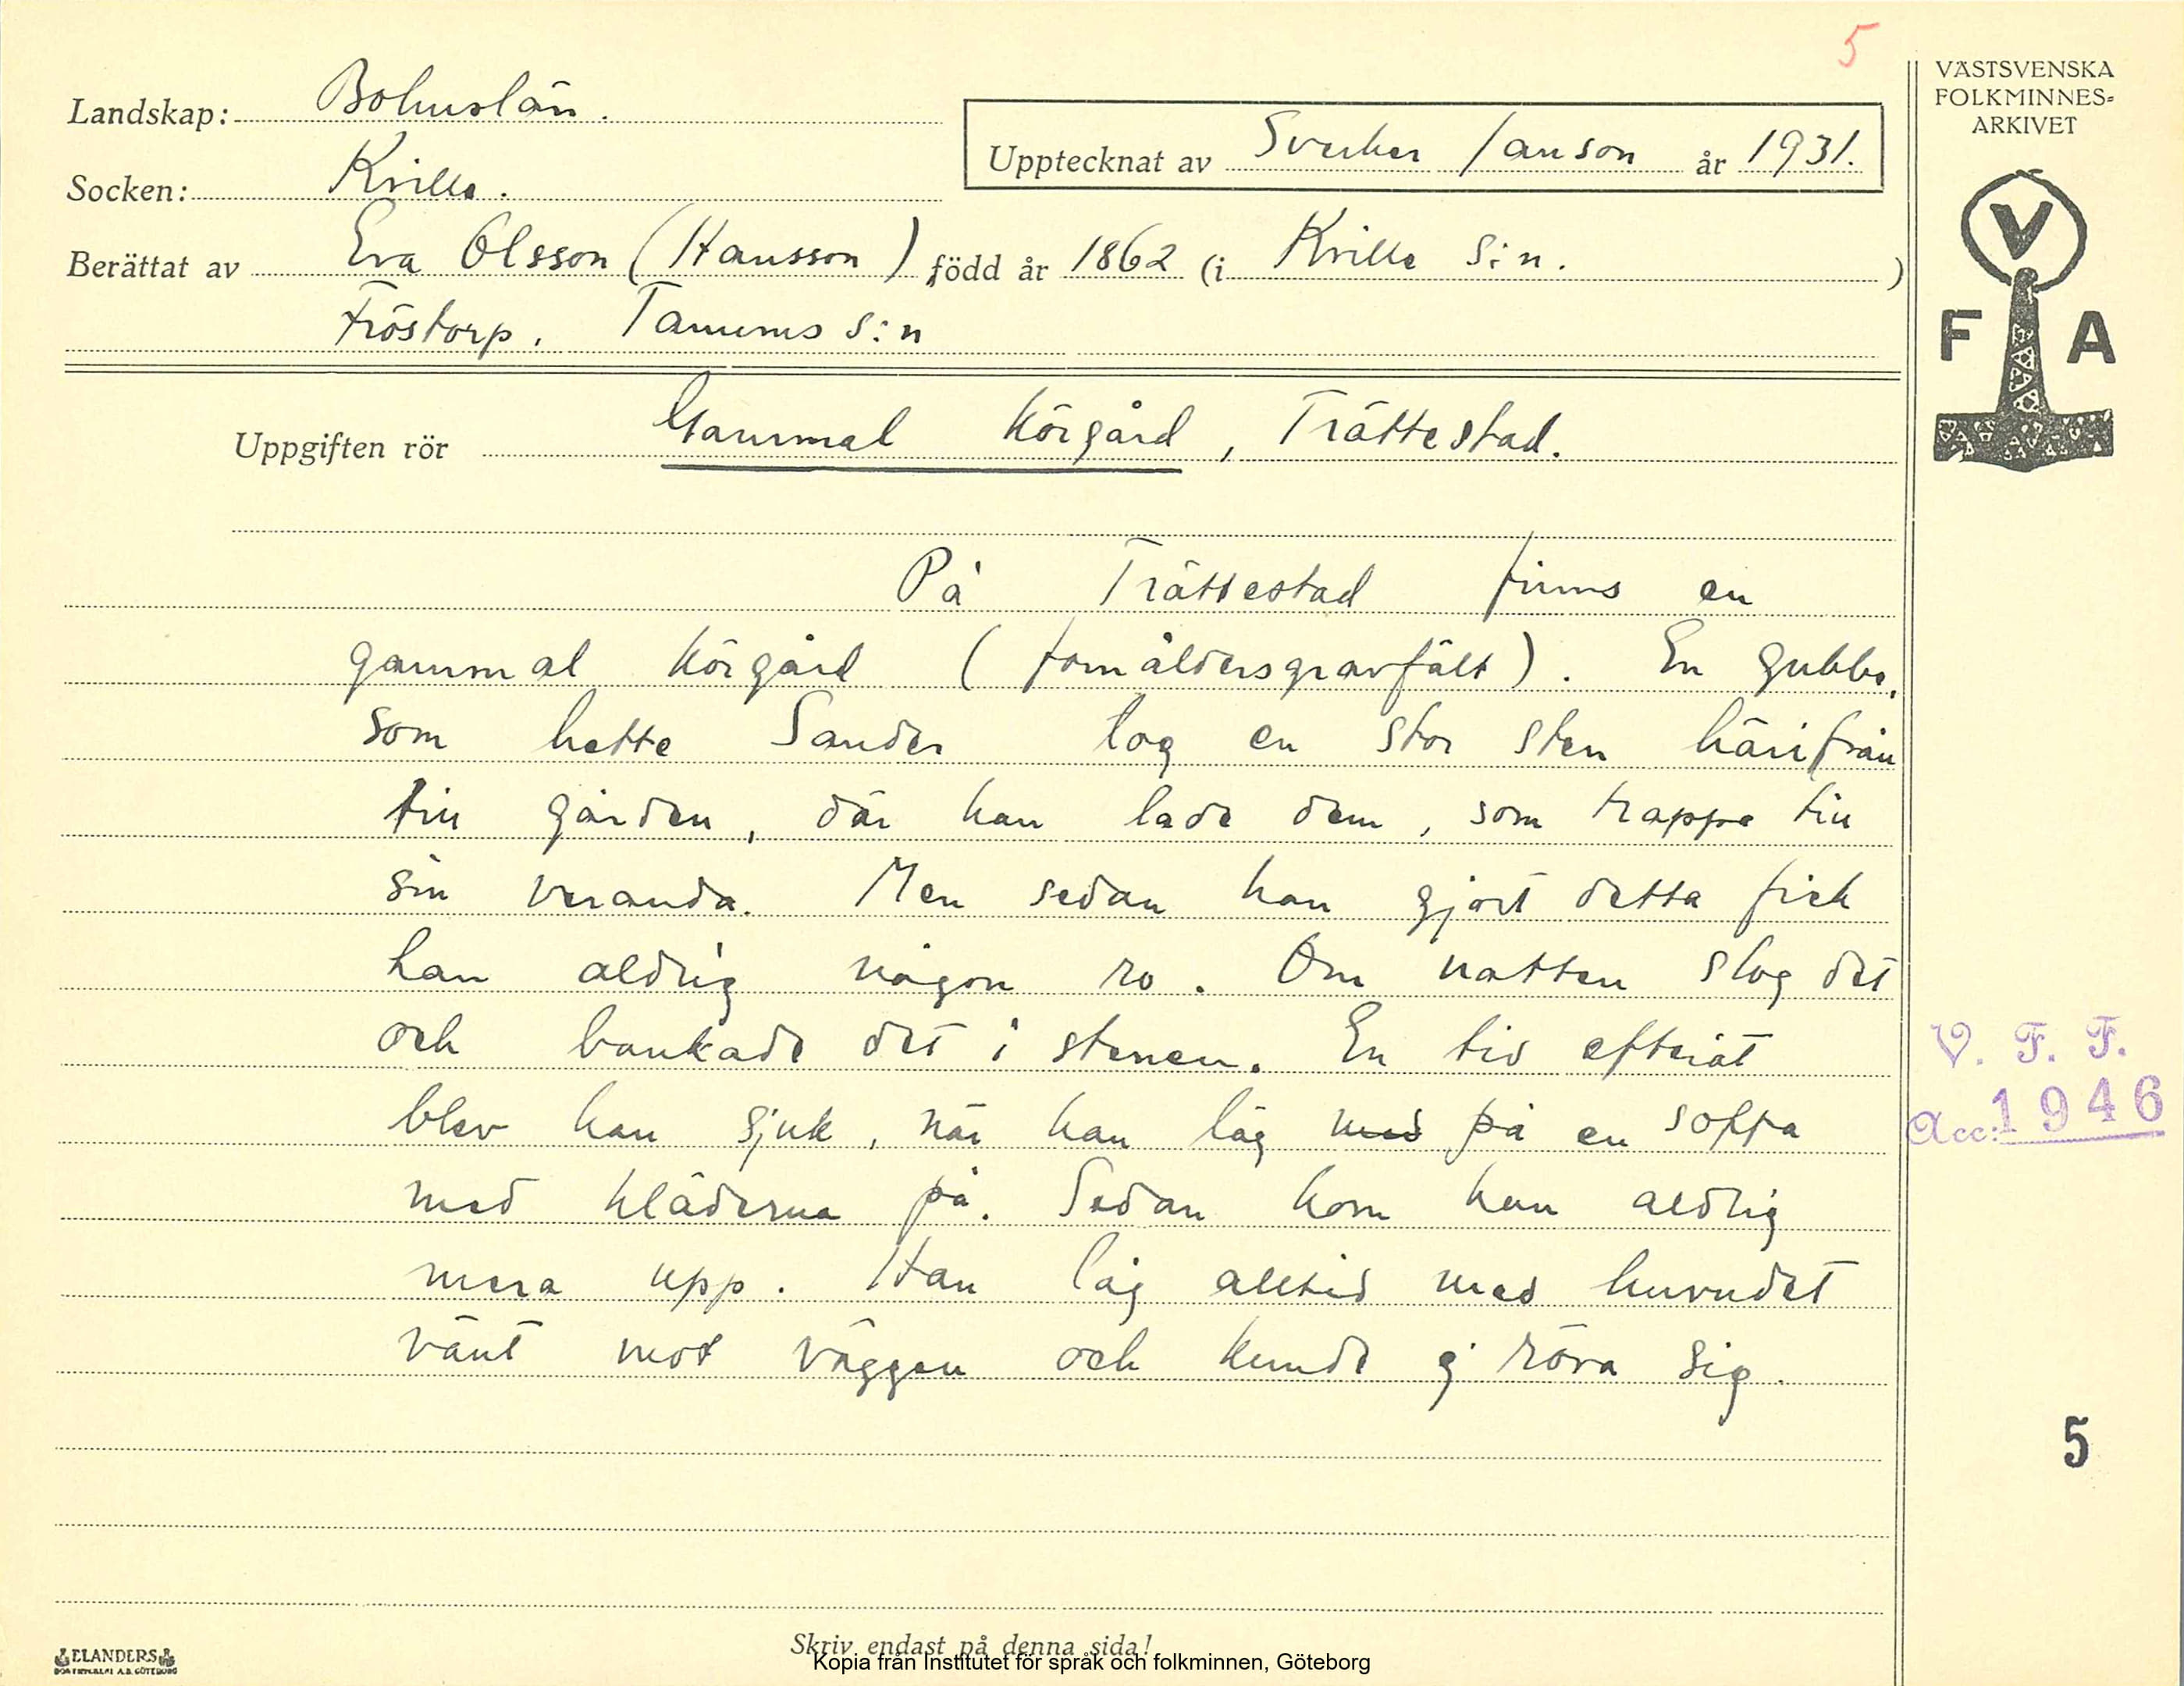 5
VÄSTSVENSKA
FOLKMINNES=
ARKIVET
Landskap: Bohuslän.
Upptecknat av Sverker Janson år 1931.
Socken: Kville.
Berättat av Eva Olsson (Hansson) född år 1862 (i Kville s:n. )
Fröstorp. Tanums s:n
V
F A
Uppgiften rör Gammal körgård, Trättestad.
På Trättestad finns en
gammal körgård (fornåldersgravfält). En gubbe,
som hette Sander tog en stor sten härifrån
till gården, där han lade dem, som trappa till
sin veranda. Men sedan han gjort detta fick
han aldrig någon ro. Om natten slog det
och bankade det i stenen. En tid efteråt
V. F. F.
blev han sjuk, när han låg med på en soffa
Acc: 1946
med kläderna på. Sedan kom han aldrig
mera upp. Han låg alltid med huvudet
vänt mot väggen och kunde ej röra sig.
5
Skriv endast på denna sida!
ELANDERS
BOKTRYCKERI A.B. GÖTEBORG
Kopia från Institutet för språk och folkminnen, Göteborg